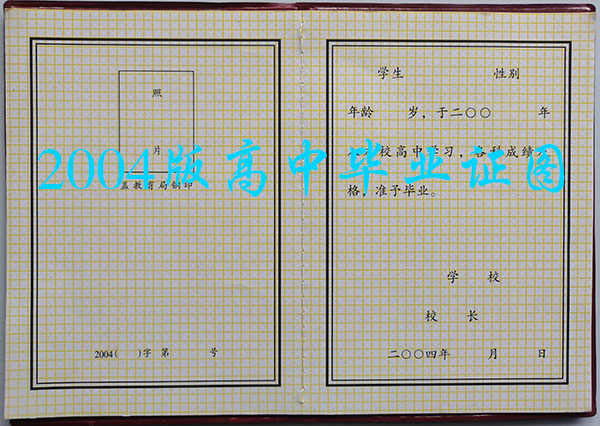 照
片
盖教育局钢印
2004( )字 第 号
学生 性别
年龄 岁，于二〇〇 年
校高中学习，各科成绩
格，准予毕业。
学 校
校 长
二〇〇四年 月 日
2004版高中毕业证图